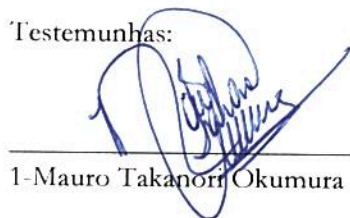 Testemunhas:
1-Mauro Takanori Okumura